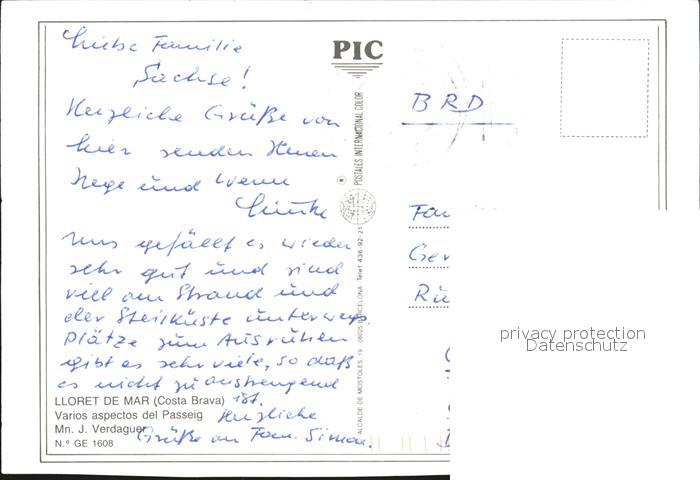 Liebe Familie
Sachse!
Herzliche Grüße von
hier senden Ihnen
Hege und Wenn
uns gefällt es wieder
sehr gut und sind
viel am Strand und
der Steilküste unterwegs.
Plätze zum Ausruhen
gibt es sehr viele, so daß
es nicht zu anstrengend
ist.
Herzliche
Grüße an Fam. Simon.
LLORET DE MAR (Costa Brava)
Varios aspectos del Passeig
Mn. J. Verdaguer
N.° GE 1608
PIC
POSTALES INTERNACIONAL COLOR
ALCALDE DE MOSTOLES 19 08025 BARCELONA Telef 436-92-21
BRD
Fam
Ger
Rü
privacy protection
Datenschutz